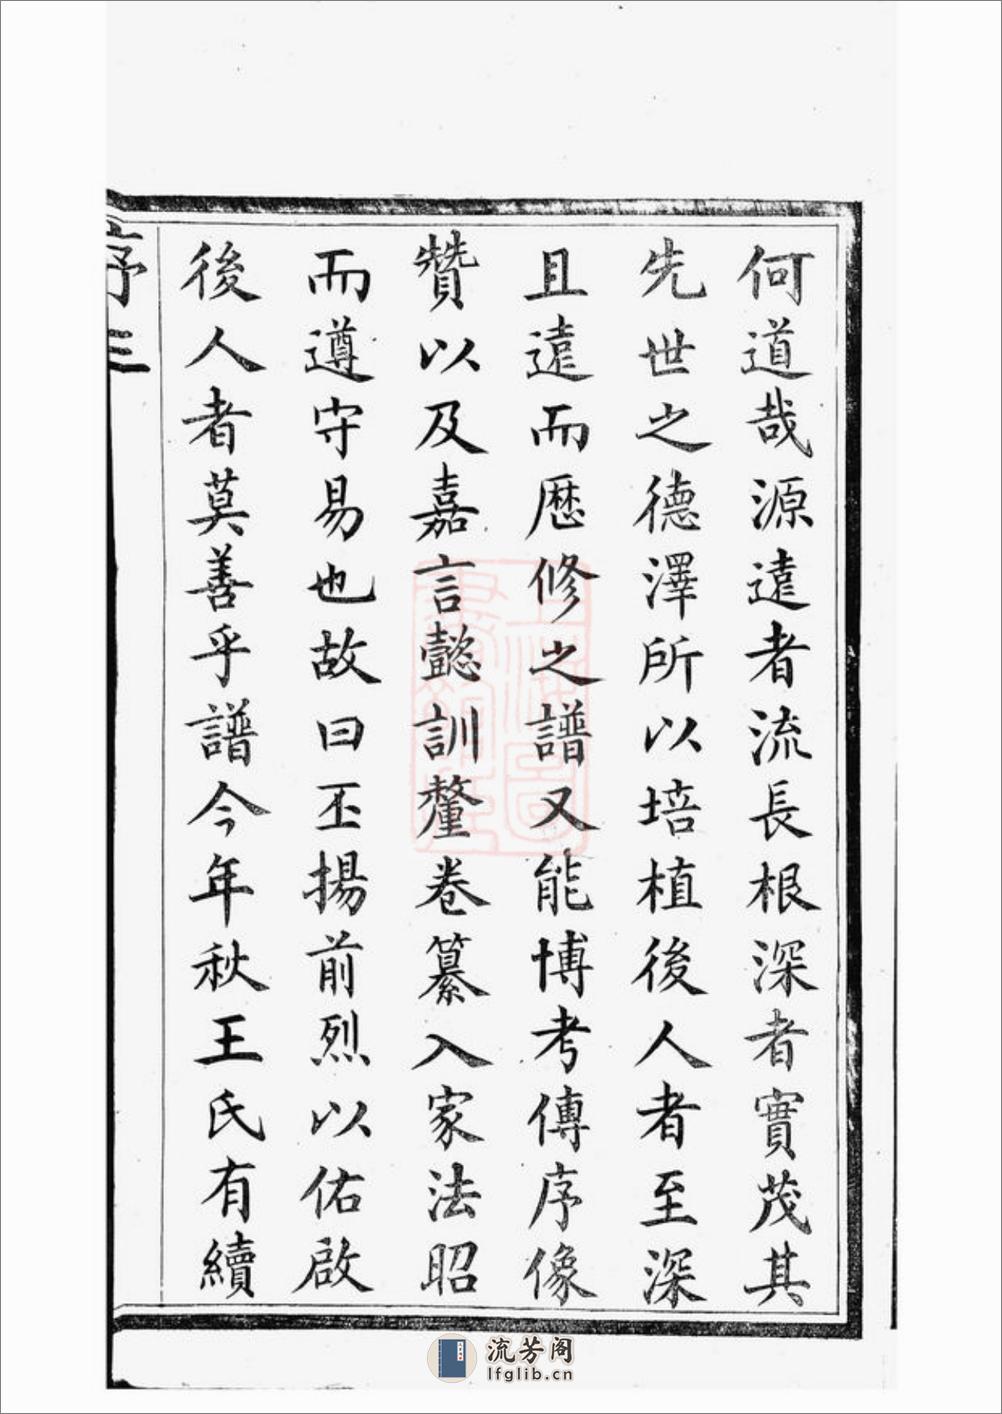 何道哉源遠者流長根深者實茂其
先世之德澤所以培植後人者至深
且遠而歷修之譜又能博考傳序像
贊以及嘉言懿訓釐卷纂入家法昭
而遵守易也故曰丕揚前烈以佑啟
後人者莫善乎譜今年秋王氏有續
序三
流芳阁
lfglib.cn